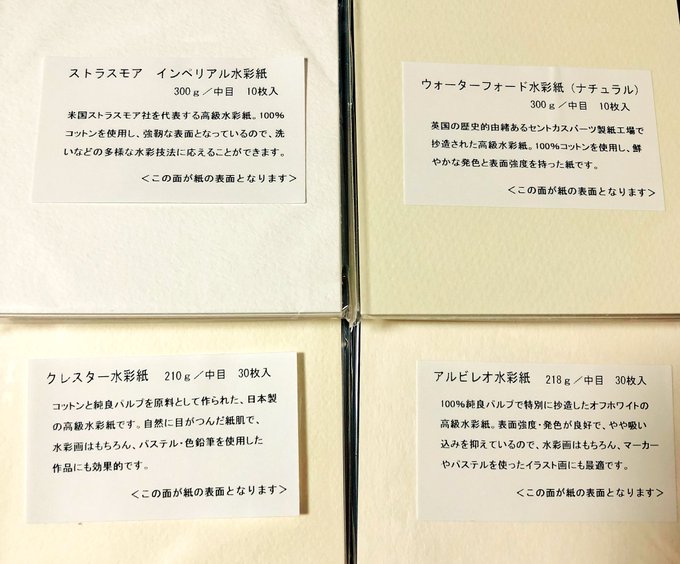 ストラスモア　インペリアル水彩紙
300ｇ／中目　10枚入
米国ストラスモア社を代表する高級水彩紙。100%
コットンを使用し、強靭な表面となっているので、洗
いなどの多様な水彩技法に応えることができます。
＜この面が紙の表面となります＞
ウォーターフォード水彩紙（ナチュラル）
300ｇ／中目　10枚入
英国の歴史的由緒あるセントカスバーツ製紙工場で
抄造された高級水彩紙。100%コットンを使用し、鮮
やかな発色と表面強度を持った紙です。
＜この面が紙の表面となります＞
クレスター水彩紙　210ｇ／中目　30枚入
コットンと純良パルプを原料として作られた、日本製
の高級水彩紙です。自然に目がつんだ紙肌で、
水彩画はもちろん、パステル・色鉛筆を使用した
作品にも効果的です。
＜この面が紙の表面となります＞
アルビレオ水彩紙　218ｇ／中目　30枚入
100%純良パルプで特別に抄造したオフホワイトの
高級水彩紙。表面強度・発色が良好で、やや吸い
込みを抑えているので、水彩画はもちろん、マーカー
やパステルを使ったイラスト画にも最適です。
＜この面が紙の表面となります＞